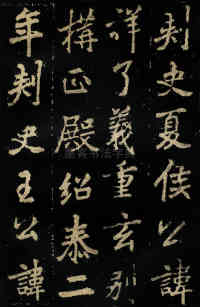 刾史夏侯公諱
詳了義重玄别
構正殿紹泰二
年刾史王公諱